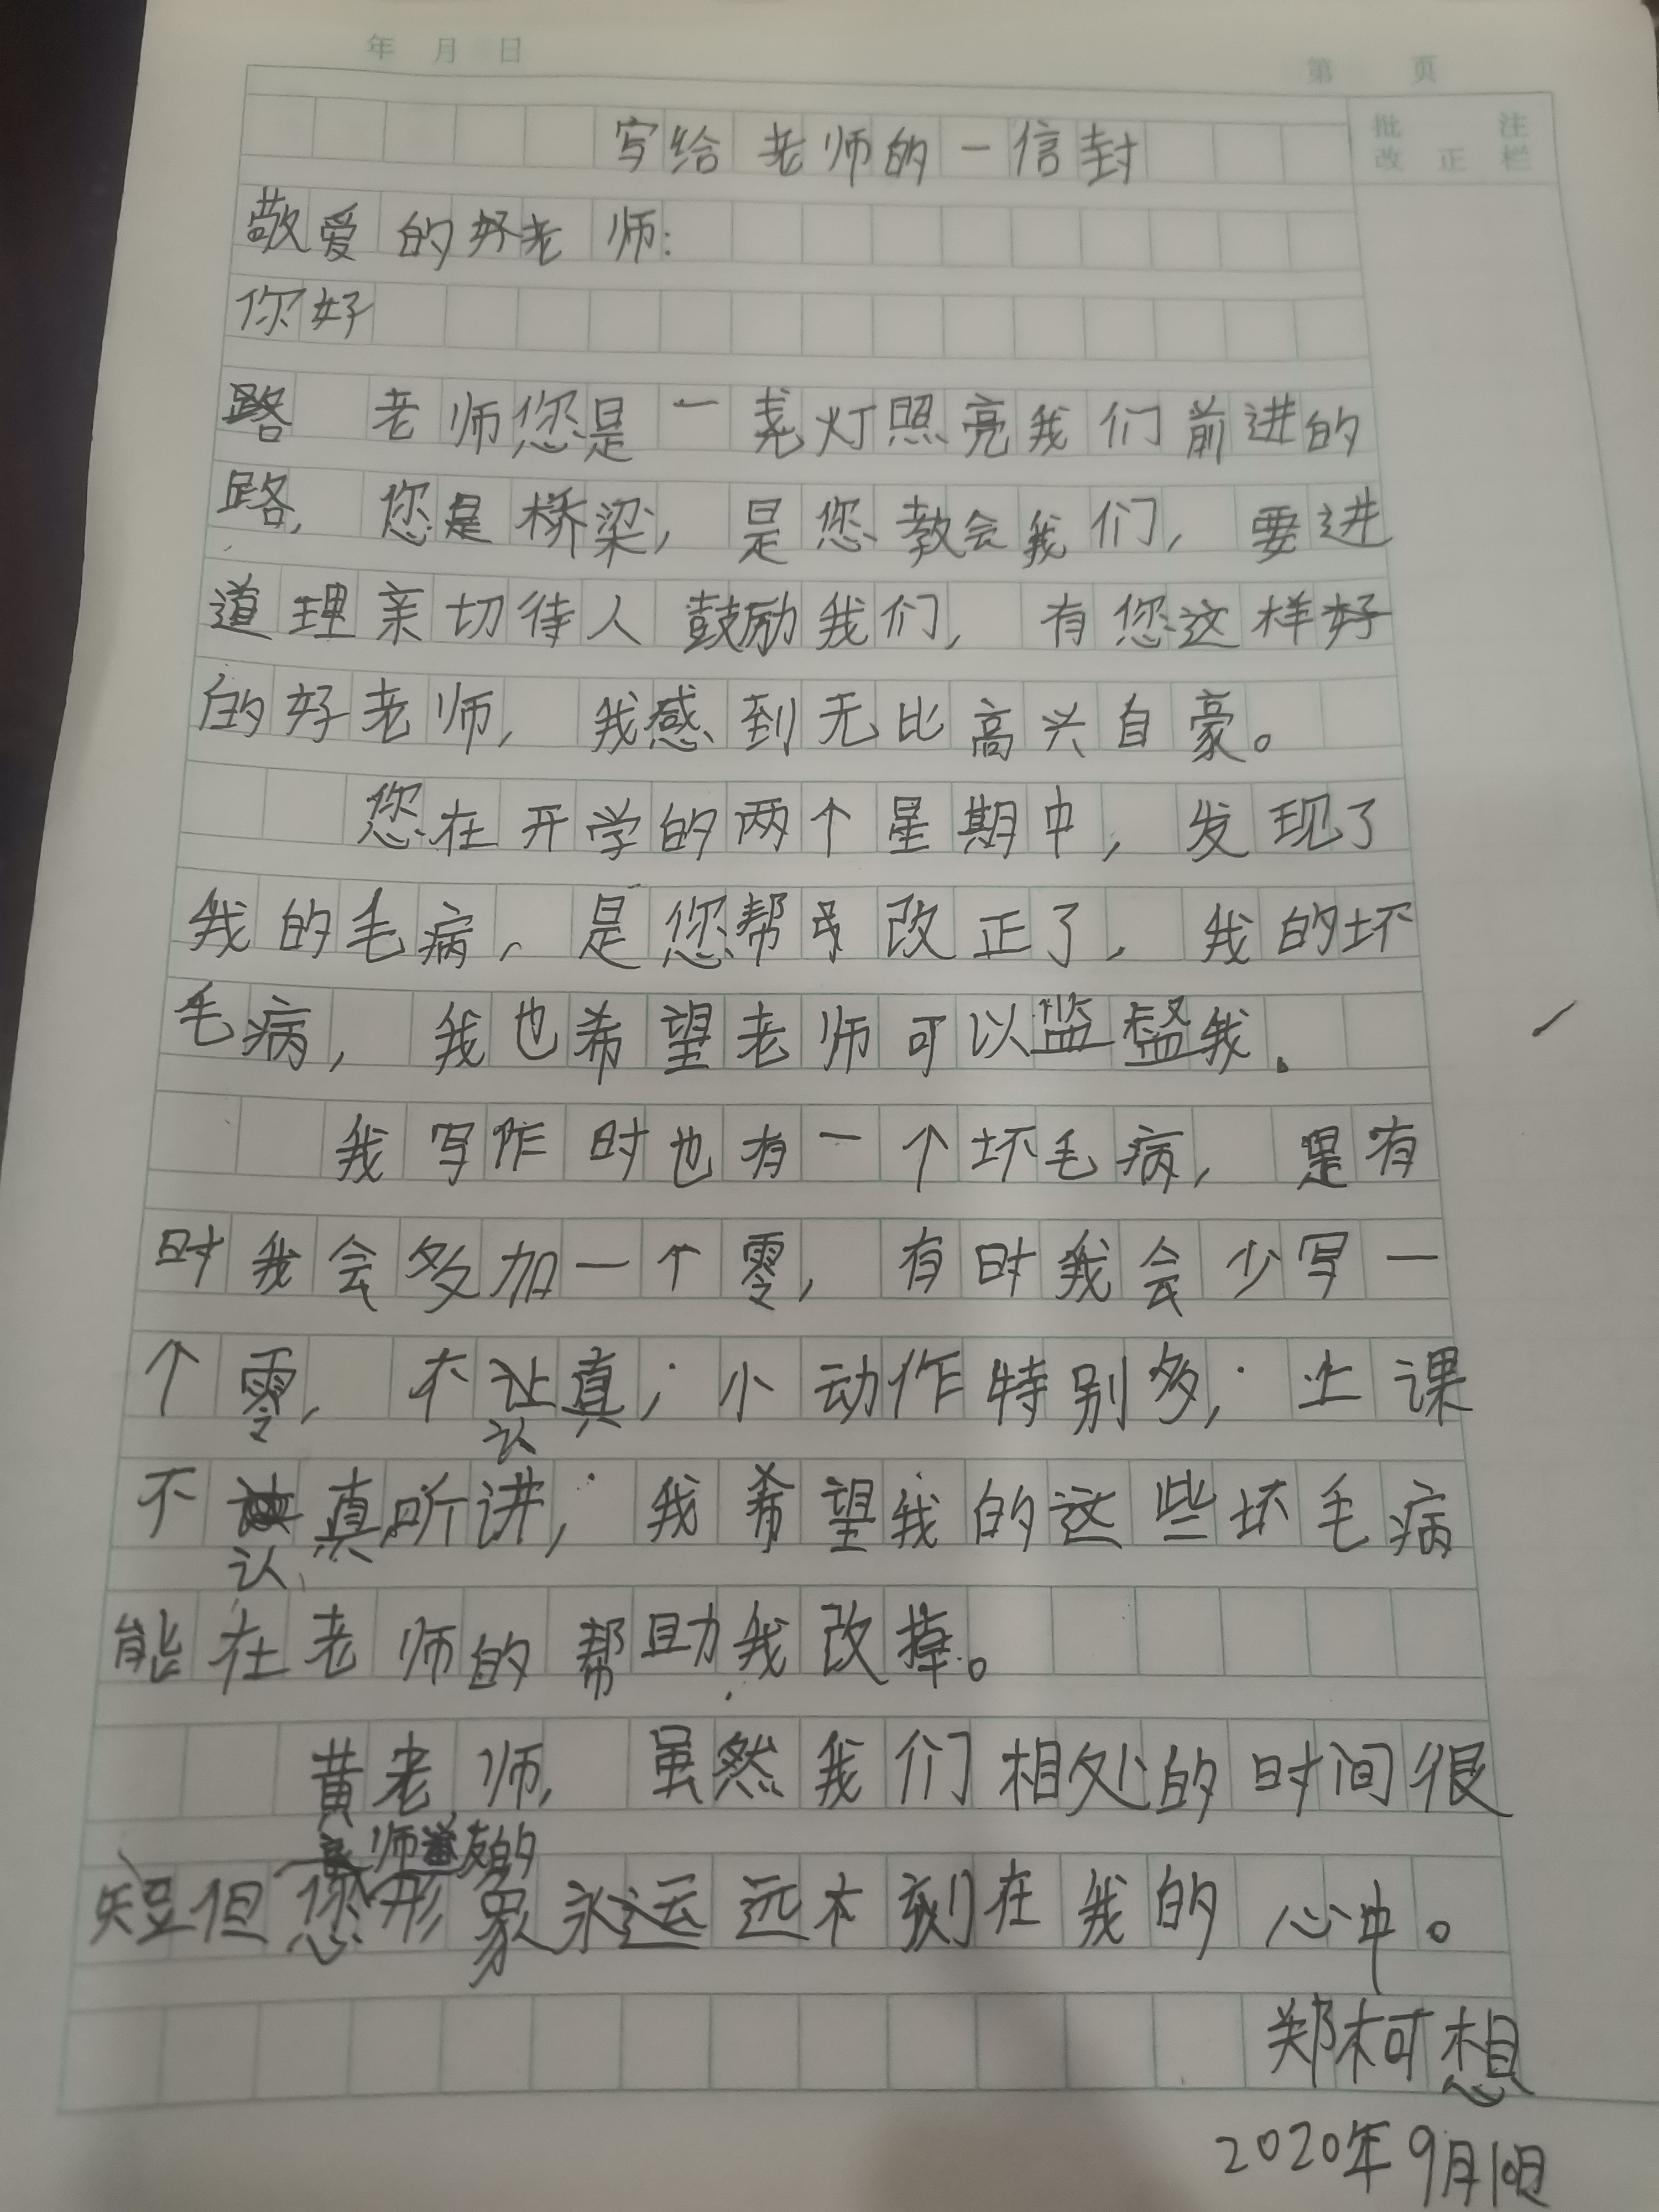 年 月 日
第 页
批 注
改 正 栏
写给老师的一信封
敬爱的好老师:
你好
老师您是一尧灯照亮我们前进的
路,您是桥梁,是您教会我们,要进
道理亲切待人鼓励我们,有您这样好
的好老师,我感到无比高兴自豪。
您在开学的两个星期中,发现了
我的毛病,是您帮我改正了,我的坏
毛病,我也希望老师可以监督我.
我写作时也有一个坏毛病,是有
时我会多加一个零,有时我会少写一
个零,不认真;小动作特别多;上课
不认真听讲;我希望我的这些坏毛病
能在老师的帮助我改掉。
黄老师,虽然我们相处的时间很
短但您形象永远远本刻在我的心中。
郑柯想
2020年9月10日